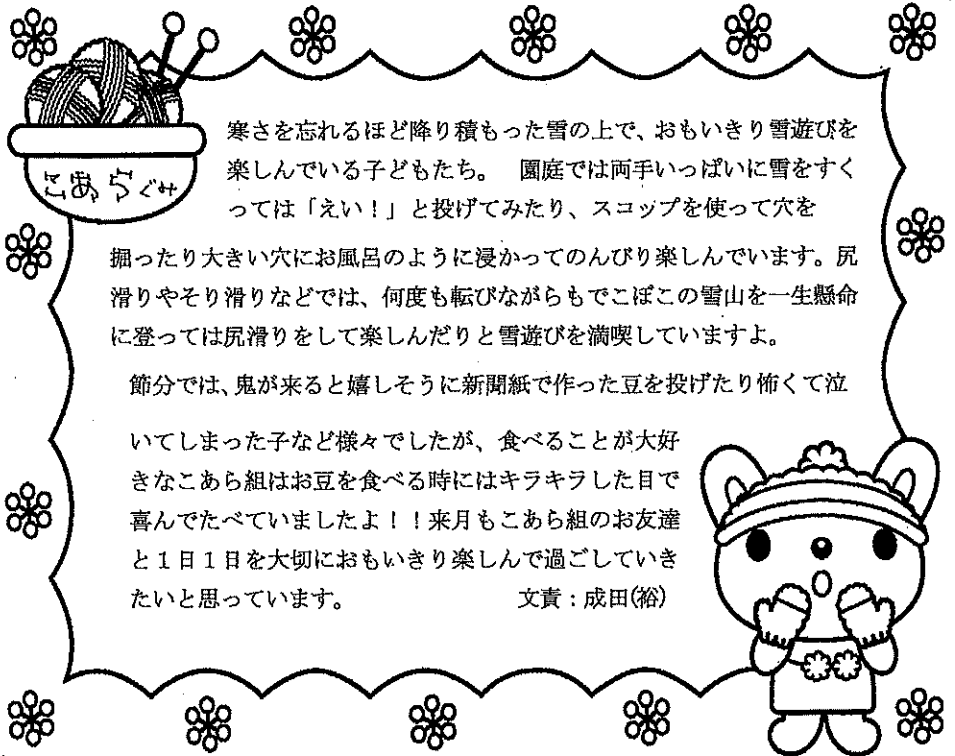 こあらぐみ
寒さを忘れるほど降り積もった雪の上で、おもいきり雪遊びを
楽しんでいる子どもたち。　園庭では両手いっぱいに雪をすく
っては「えい！」と投げてみたり、スコップを使って穴を
掘ったり大きい穴にお風呂のように浸かってのんびり楽しんでいます。尻
滑りやそり滑りなどでは、何度も転びながらもでこぼこの雪山を一生懸命
に登っては尻滑りをして楽しんだりと雪遊びを満喫していますよ。
節分では、鬼が来ると嬉しそうに新聞紙で作った豆を投げたり怖くて泣
いてしまった子など様々でしたが、食べることが大好
きなこあら組はお豆を食べる時にはキラキラした目で
喜んでたべていましたよ！！来月もこあら組のお友達
と１日１日を大切におもいきり楽しんで過ごしていき
たいと思っています。　文責：成田(裕)